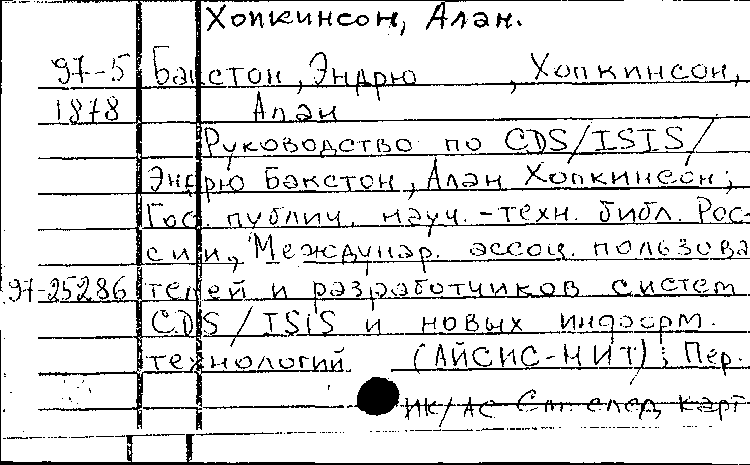 Хопкинсон, Алан.
97-5 Бакстон, Эндрю , Хопкинсон,
1878 Алан
Руководство по CDS/ISIS/
Эндрю Бакстон, Алан Хопкинсон;
Гос. публич. науч.-техн. библ. Рос-
сии, Междунар. ассоц. пользова
97-25286 телей и разработчиков систем
CDS/ISIS и новых информ.
технологий (АЙСИС-НИТ); Пер.
ИК/АС См. след карт